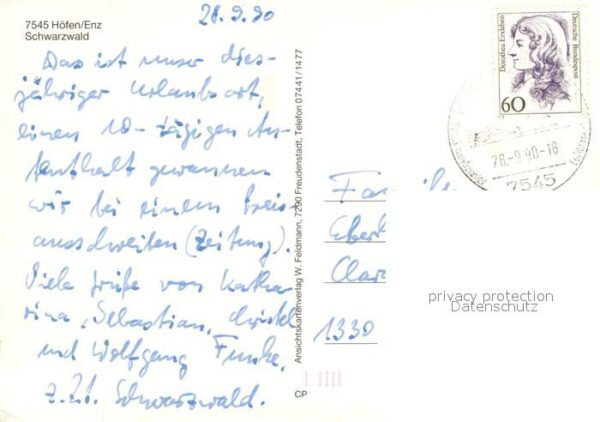 7545 Höfen/Enz
Schwarzwald
28.9.90
Das ist unser dies-
jähriger Urlaubsort,
einen 10-tägigen Au-
fenthalt gewannen
wir bei einem Preis-
ausschreiben (Zeitung).
Viele Grüße von Katha-
rina, Sebastian, Christel
und Wolfgang Funke,
z.Zt. Schwarzwald.
Ansichtskartenverlag W. Feldmann, 7290 Freudenstadt, Telefon 07441/1477
CP
Dorothea Erxleben
Deutsche Bundespost
60
28.-9.90-18
7545
Fa
Eber
Clar
1330
privacy protection
Datenschutz